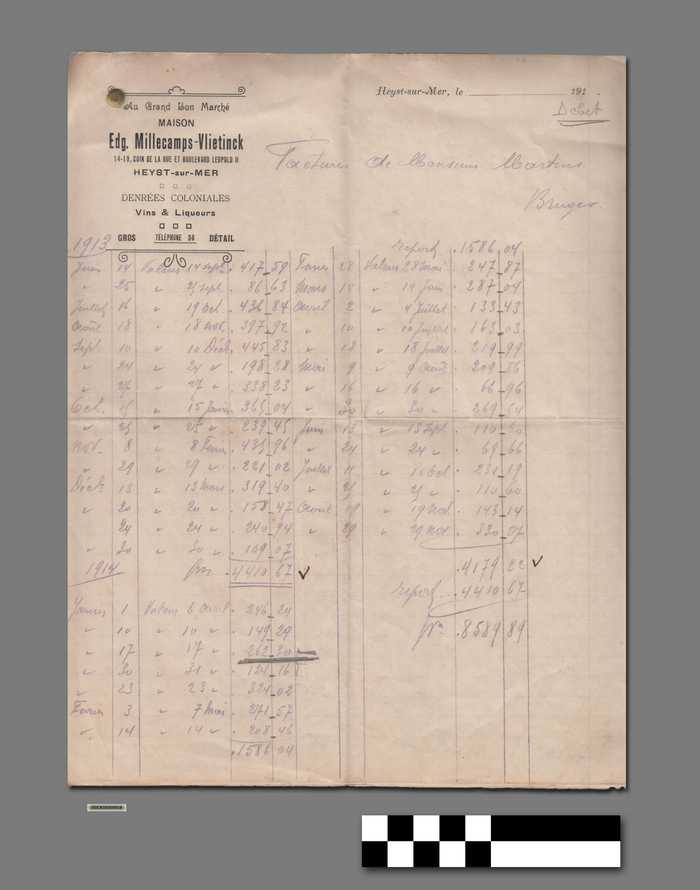 Au Grand Bon Marché
MAISON
Edg. Millecamps-Vlietinck
14-18, COIN DE LA RUE ET BOULEVARD LEOPOLD II
HEYST-sur-MER
DENRÉES COLONIALES
Vins & Liqueurs
GROS TÉLÉPHONE DÉTAIL
Heyst-sur-Mer, le 191 .
Débet
Factures de Monsieur Martins
Bruges
1913
Juin 14 Valeur 14 sept. 417 59
" 25 " 25 sept. 86 63
Juillet 16 " 19 Oct. 436 84
Août 18 " 18 nov. 397 92
Sept. 10 " 10 Déc. 445 83
" 24 " 24 " 198 28
" 27 " 27 " 338 23
Oct. 15 " 15 Janv. 365 04
" 25 " 25 " 239 45
Nov. 8 " 8 Fevr. 435 96
" 29 " 29 " 221 02
Déc. 13 " 13 Mars 319 40
" 20 " 20 " 158 47
" 24 " 24 " 240 94
" 30 " 30 " 109 07
frs 4410 67
1914
Janvier 1 Valeur 6 avril 246 24
" 10 " 10 " 149 29
" 17 " 17 " 262 30
" 30 " 31 " 124 16
" 23 " 23 " 324 02
Fevrier 3 " 7 Mai 271 57
" 14 " 14 " 208 46
1586 04
report 1586 04
Fevr. 28 Valeur 28 mai 247 87
Mars 14 Juin 287 04
Avril 2 " 4 Juillet 133 43
" 10 " 10 Juillet 163 03
" 18 " 18 Juillet 219 99
Mai 9 " 9 août 209 56
" 16 " 16 " 66 96
" 30 " 30 " 269 64
Juin 13 " 13 Sept. 110 20
" 24 " 24 " 69 66
Juillet 11 " 10 Oct 231 19
" 25 " 25 " 110
Aout 19 " 19 Nov. 143 14
" 29 " 29 Nov. 330 07
4179 22
report 4410 67
frs 8589 89